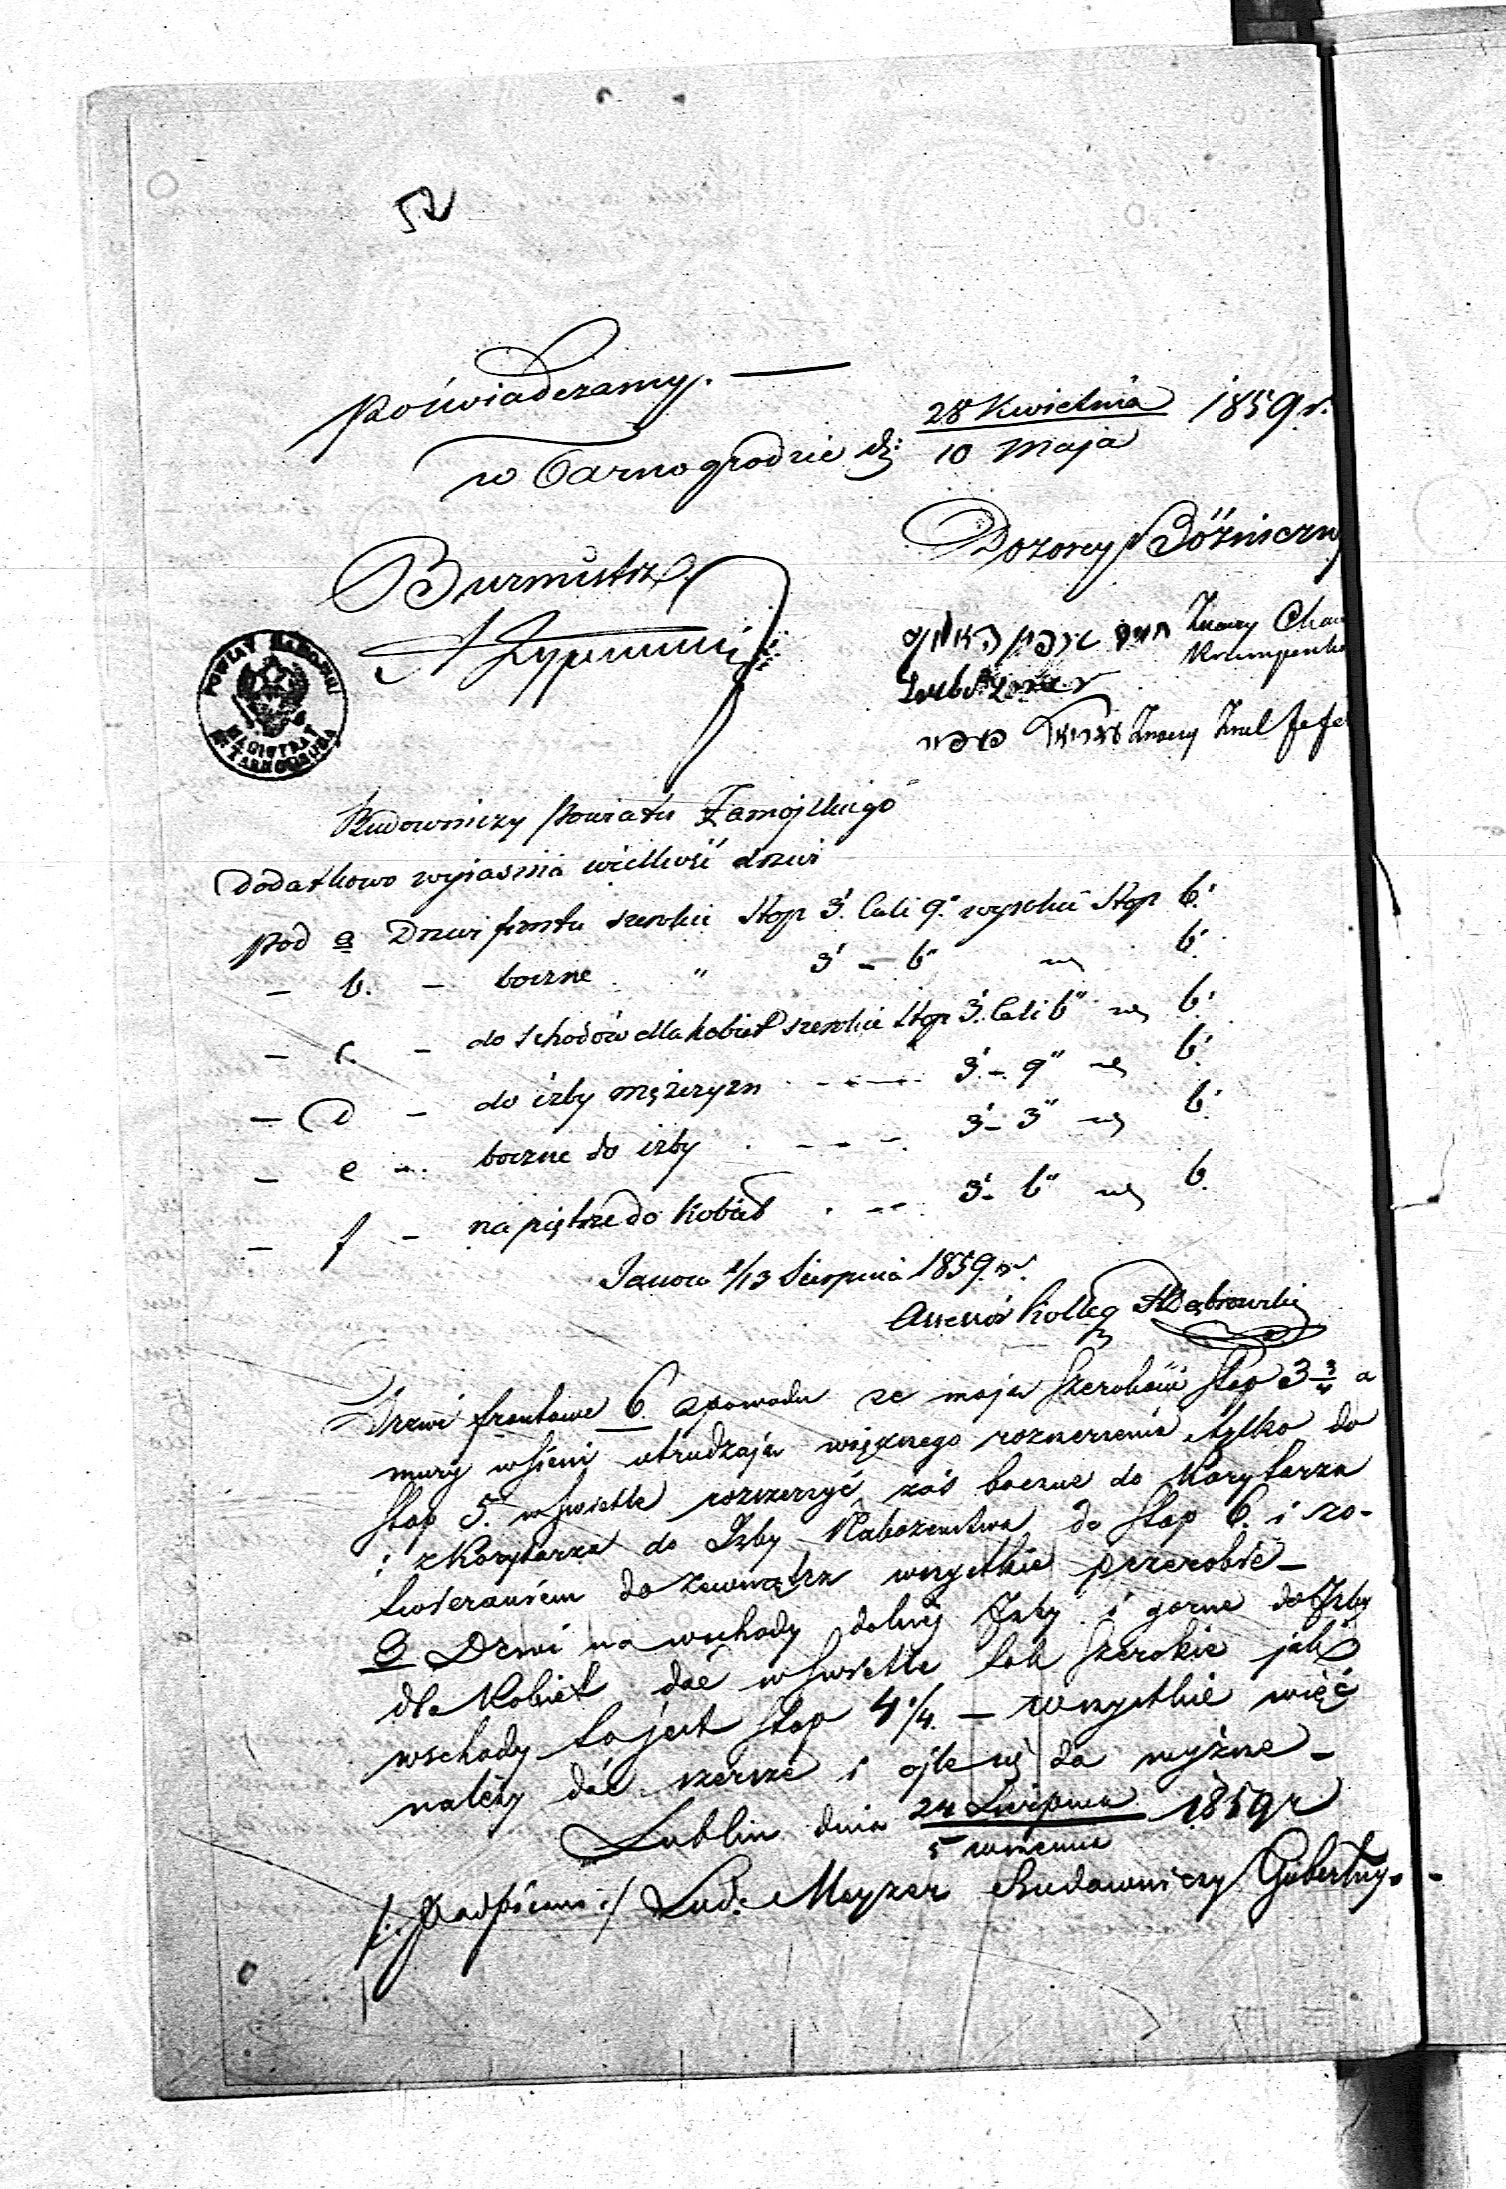 52
Poświadczamy. —
w Tarnogrodzie d: 28 Kwietnia / 10 Maja 1859 r.
Dozory Bóźniczy
Burmistrz
POWIAT ZAMOJSKI
MAGISTRAT
M. TARNOGRODU
Znaczy
Znaczy Izrael
Budowniczy Powiatu Zamojskiego
dodatkowo wyjasnia wielkość drzwi
pod a Drzwi frontu szerokie Stop 3'. Cali 9". wysokie Stop 6'.
— b. — boczne " 3' — 6" 6'.
— c. — do schodów dla kobiet szerokie Stop 3'. Cali 6" 6'.
— D — do izby mężczyzn 3'. — 9" 6'.
— e — boczne do izby 3' — 3" 6'.
— f — na piętrze do Kobiet 3' — 6" 6.
Janow 1/13 Sierpnia 1859 r.
Assessor Kolleg Dąbrowski
Drzwi frontowe 6. z powodu ze maja szerokość stop 3 3/4 a
mury w sieni utrudzaja większego rozszerzenia tylko do
stop 5. w swietle rozszerzyć, zaś boczne do Korytarza
i z Korytarza do Izby Nabożeństwa do stop 6. i z o-
twieraniem do zewnątrz wszystkie przerobić —
Drzwi na wschody dolnej Izby i gorne do Izby
dla Kobiet dać w swietle tak szerokie jak
wschody to jest stop 4 1/4. — wszystkie więc
należy dać szersze i ojle się da wyższe —
Lublin dnia 24 Sierpnia / 5 Września 1859 r
/: Podpisano :/ Lud: Meyzer Budowniczy Gubernny. -